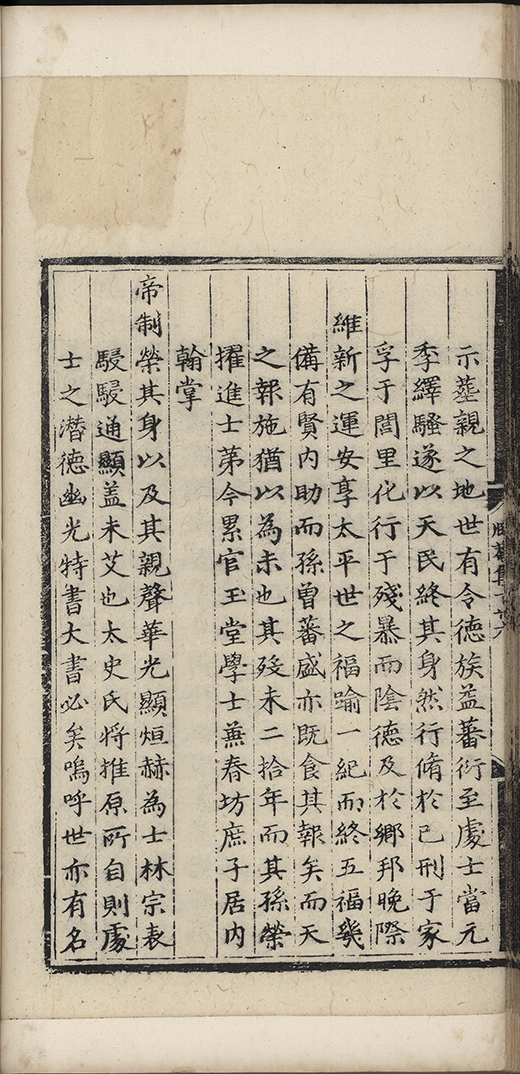 示墓親之地世有令德族益蕃衍至處士當元
季繹騷遂以天民終其身然行脩於己刑于家
孚于閭里化行于殘暴而陰德及於鄉邦晚際
維新之運安享太平世之福喻一紀而終五福幾
備有賢內助而孫曾蕃盛亦既食其報矣而天
之報施猶以為未也其歿未二拾年而其孫榮
擢進士第今累官玉堂學士兼春坊庶子居內
翰掌
帝制榮其身以及其親聲華光顯烜赫為士林宗表
駸駸通顯盖未艾也太史氏將推原所自則處
士之潛德幽光特書大書必矣嗚呼世亦有名